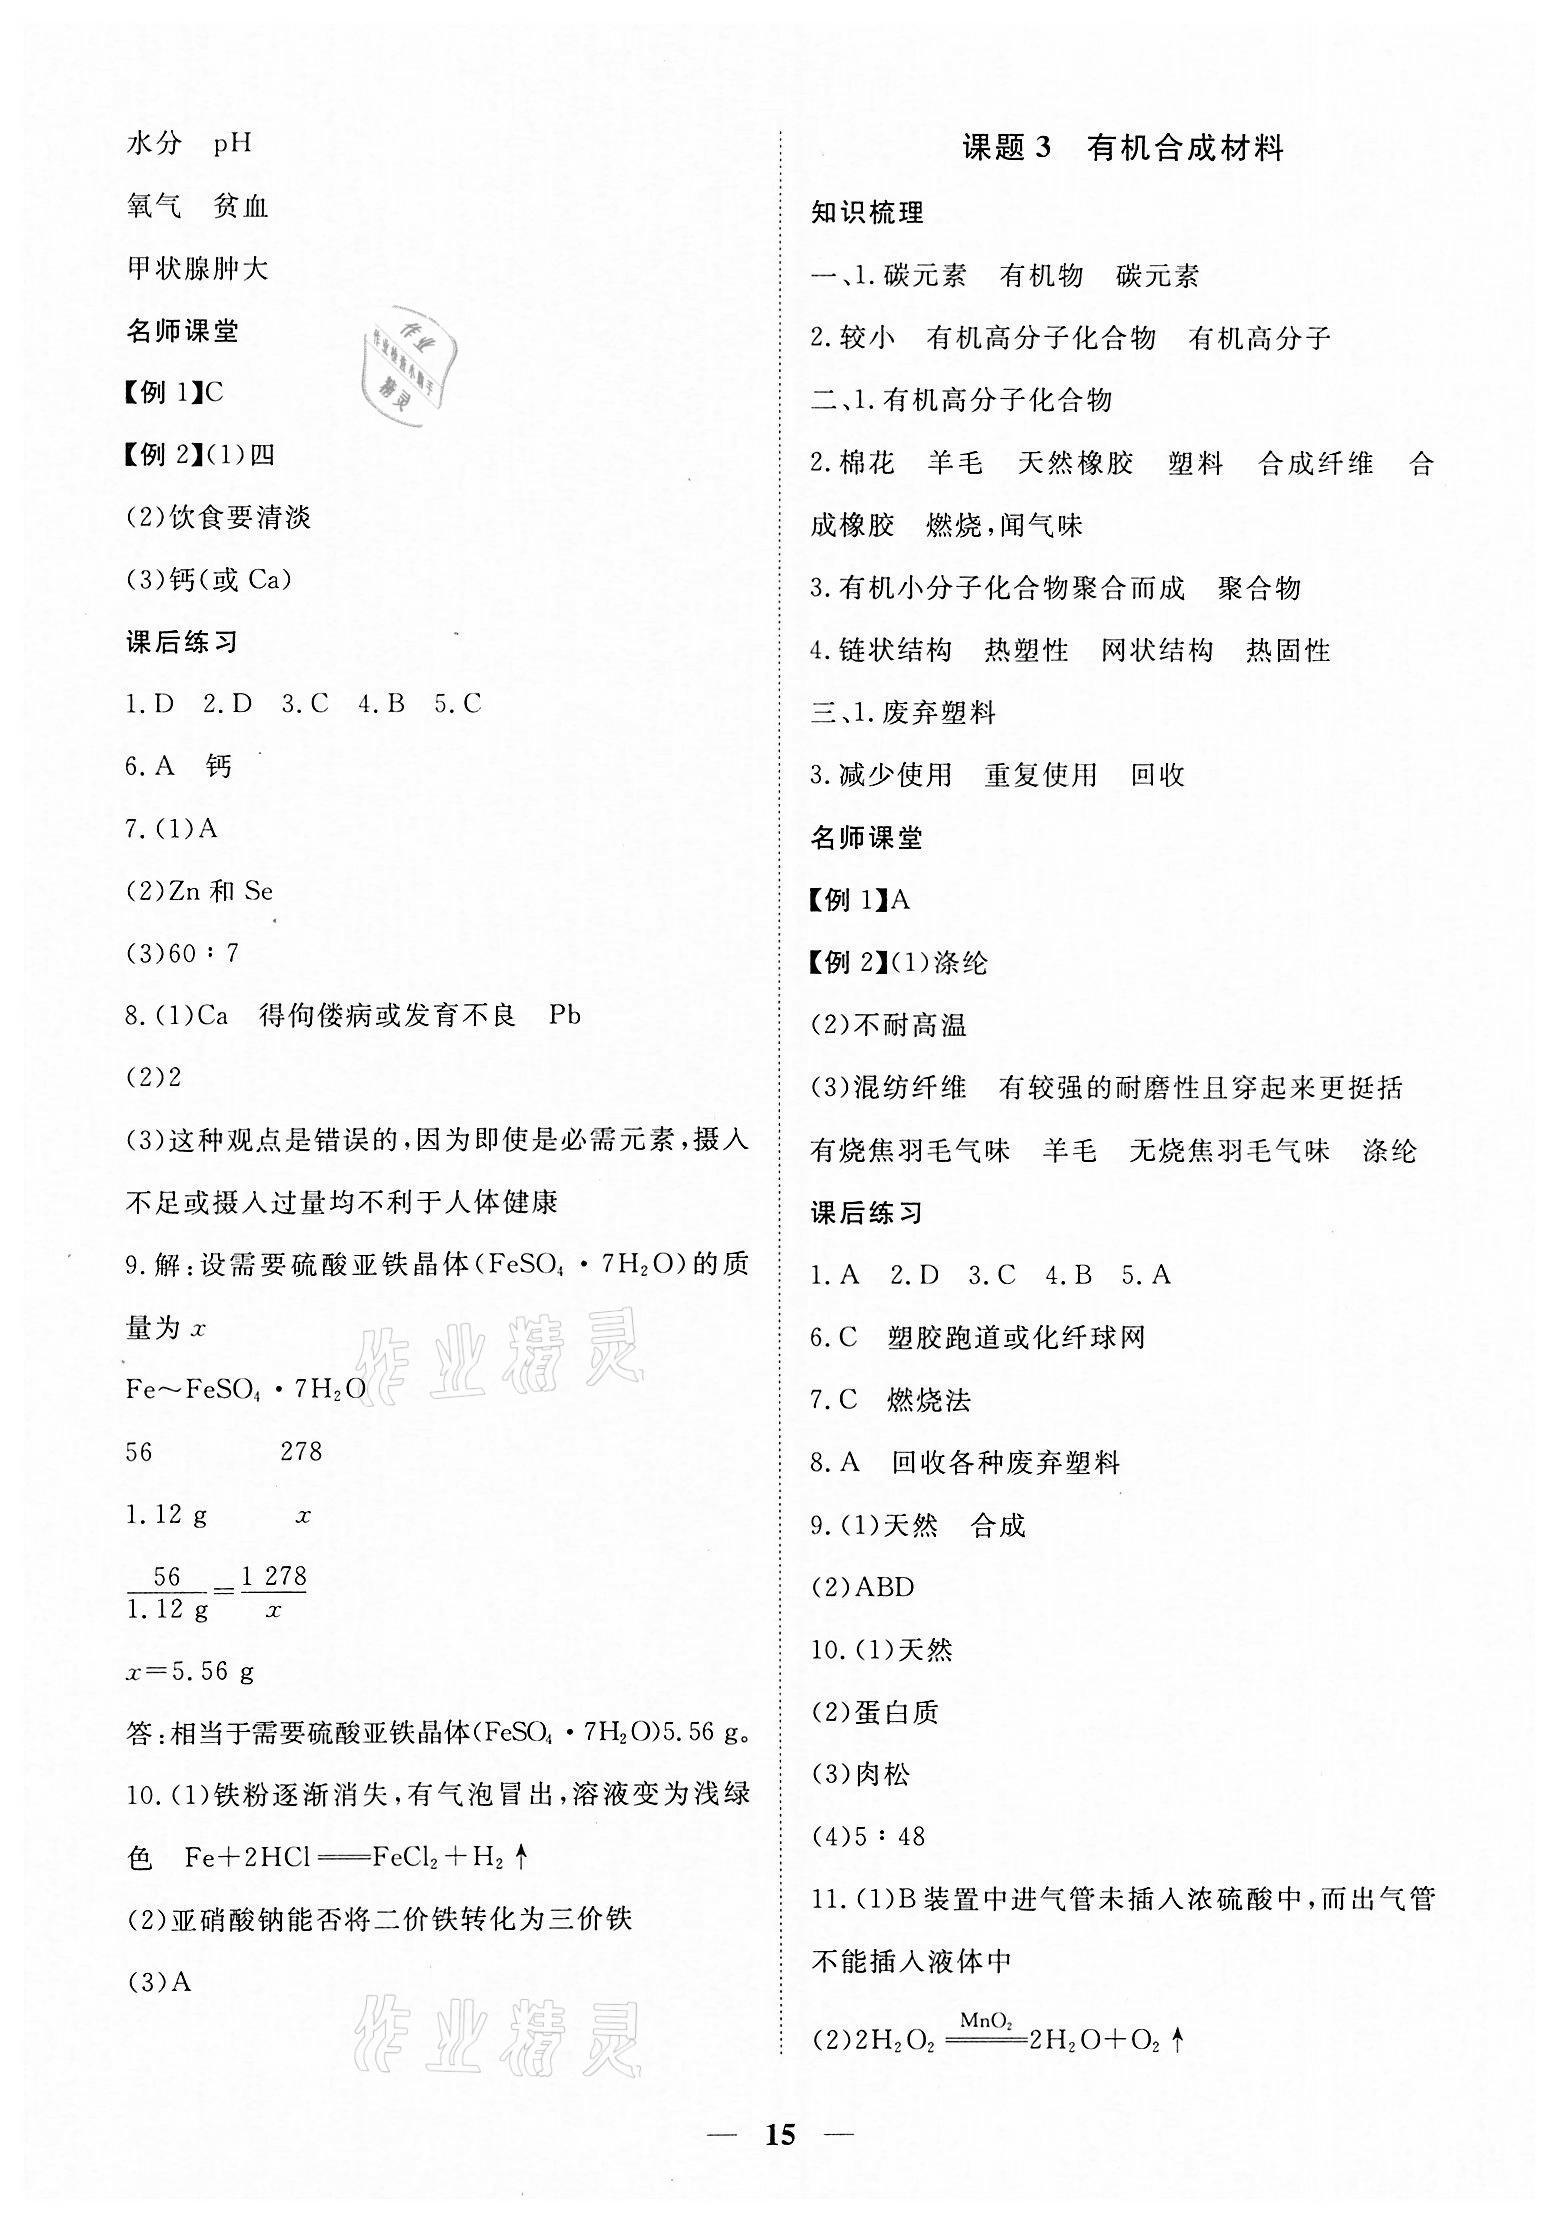 水分　pH
氧气　贫血
甲状腺肿大
名师课堂
【例 1】C
【例 2】(1)四
(2)饮食要清淡
(3)钙(或 Ca)
课后练习
1. D　2. D　3. C　4. B　5. C
6. A　钙
7. (1)A
(2)Zn 和 Se
(3)60∶7
8. (1)Ca　得佝偻病或发育不良　Pb
(2)2
(3)这种观点是错误的,因为即使是必需元素,摄入
不足或摄入过量均不利于人体健康
9. 解:设需要硫酸亚铁晶体(FeSO₄・7H₂O)的质
量为 x
Fe～FeSO₄・7H₂O
56　278
1.12 g　x
56/1.12 g=1 278/x
x=5.56 g
答:相当于需要硫酸亚铁晶体(FeSO₄・7H₂O)5.56 g。
10. (1)铁粉逐渐消失,有气泡冒出,溶液变为浅绿
色　Fe+2HCl══FeCl₂+H₂↑
(2)亚硝酸钠能否将二价铁转化为三价铁
(3)A
课题 3　有机合成材料
知识梳理
一、1. 碳元素　有机物　碳元素
2. 较小　有机高分子化合物　有机高分子
二、1. 有机高分子化合物
2. 棉花　羊毛　天然橡胶　塑料　合成纤维　合
成橡胶　燃烧,闻气味
3. 有机小分子化合物聚合而成　聚合物
4. 链状结构　热塑性　网状结构　热固性
三、1. 废弃塑料
3. 减少使用　重复使用　回收
名师课堂
【例 1】A
【例 2】(1)涤纶
(2)不耐高温
(3)混纺纤维　有较强的耐磨性且穿起来更挺括
有烧焦羽毛气味　羊毛　无烧焦羽毛气味　涤纶
课后练习
1. A　2. D　3. C　4. B　5. A
6. C　塑胶跑道或化纤球网
7. C　燃烧法
8. A　回收各种废弃塑料
9. (1)天然　合成
(2)ABD
10. (1)天然
(2)蛋白质
(3)肉松
(4)5∶48
11. (1)B 装置中进气管未插入浓硫酸中,而出气管
不能插入液体中
(2)2H₂O₂ ══MnO₂══ 2H₂O+O₂↑
— 15 —
作业
作业检查小助手
精灵
作业精灵
作业精灵